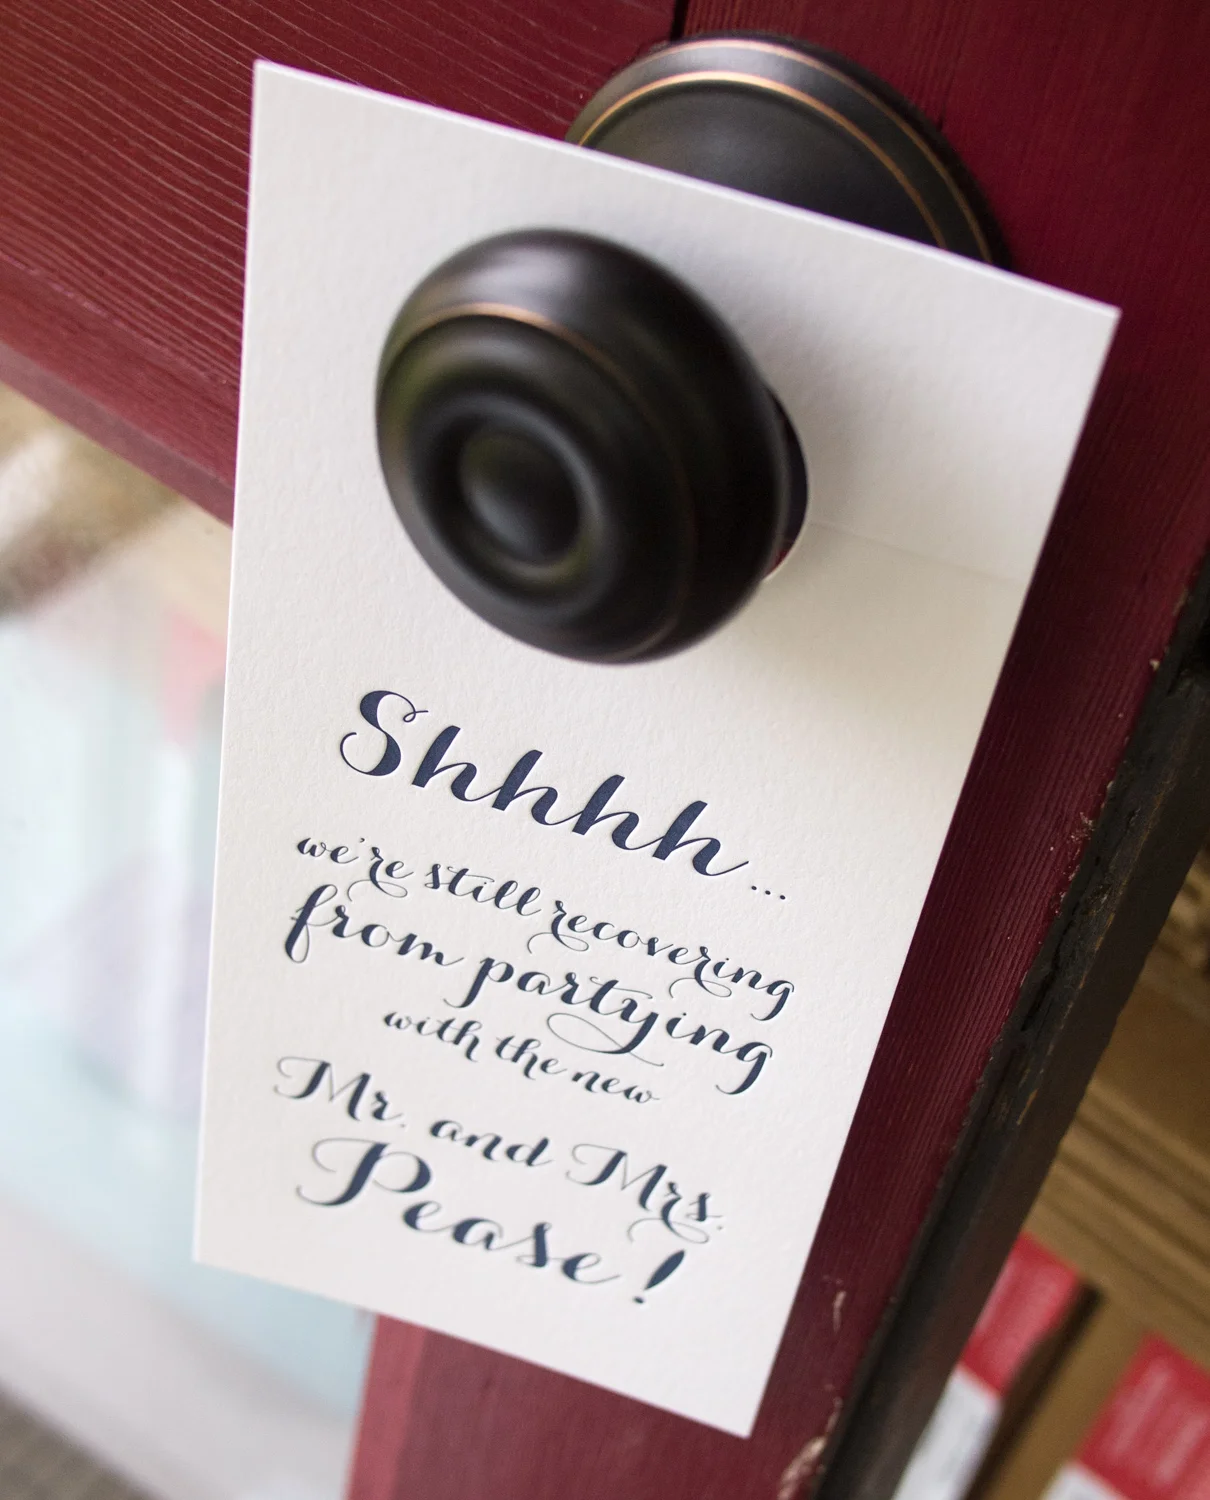 Shhhh...
we're still recovering
from partying
with the new
Mr. and Mrs.
Pease!